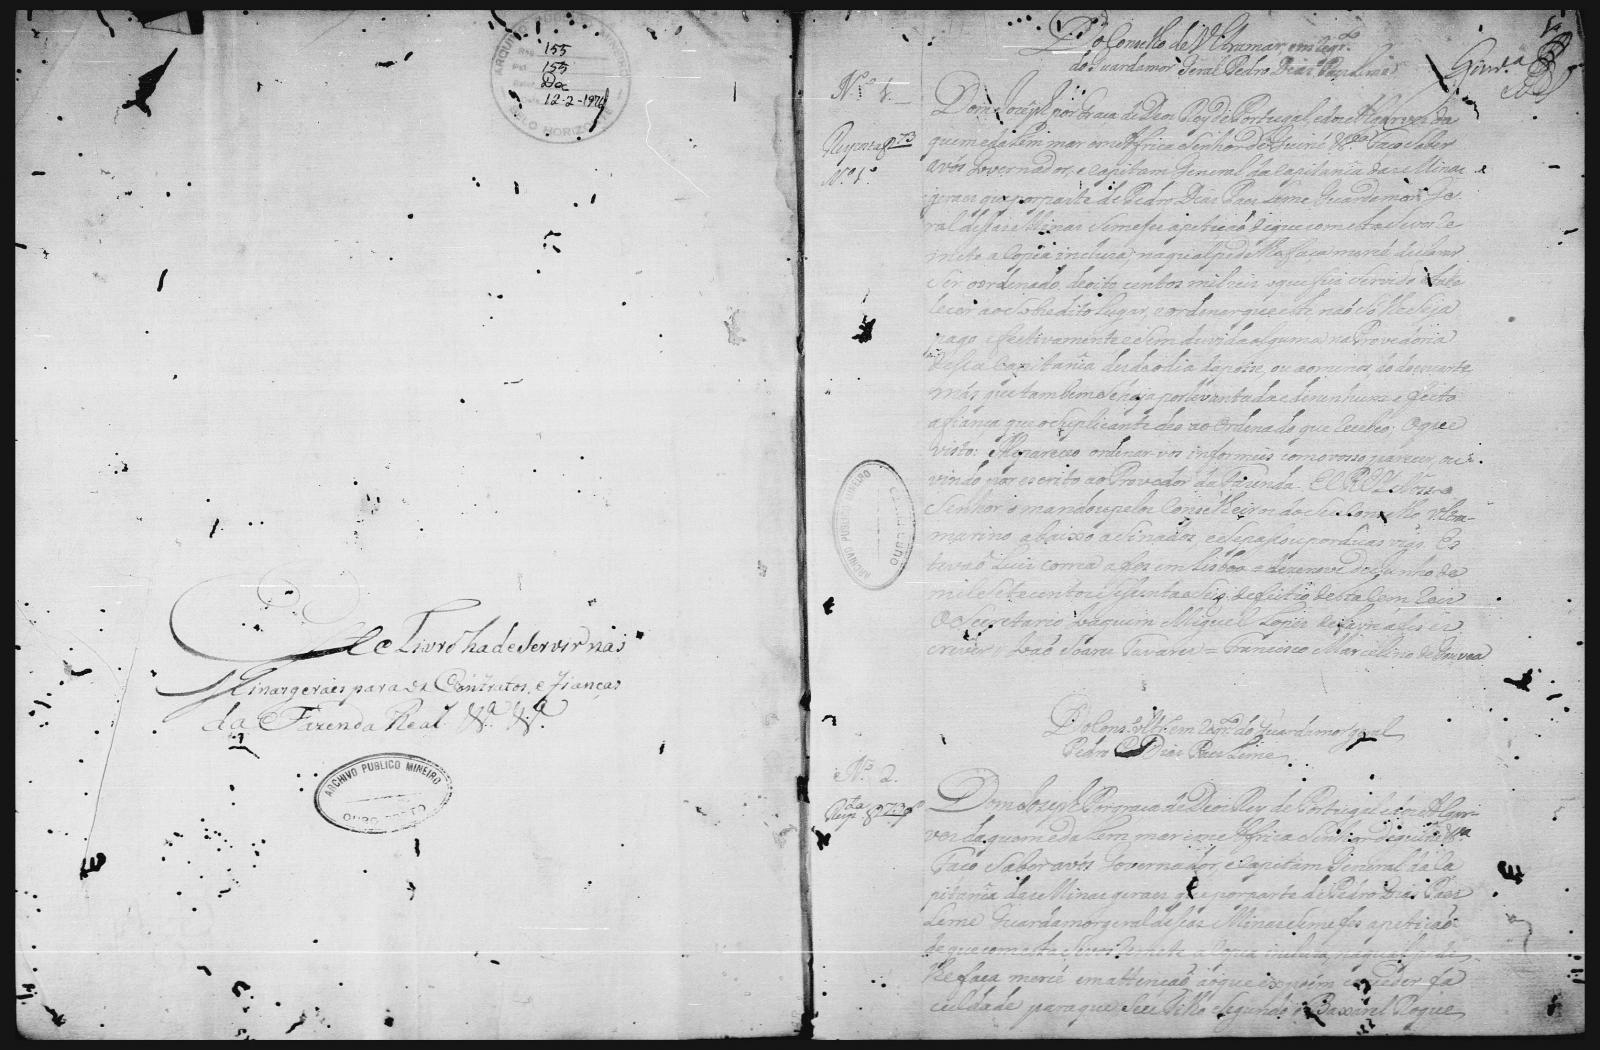 ARQUIVO PUBLICO MINEIRO
155
155
Doc
12-2-1974
BELO HORIZONTE
Este Livro ha de servir nas
Minas geraes para os Contratos, e fianças
da Fazenda Real &.ª &.ª
ARCHIVO PUBLICO MINEIRO
OURO PRETO
Do Conselho de Ultramar, em
do Guardamor Geral Pedro Dias Paes Leme
N.º 1.
Dom Joseph por graça de Deos Rey de Portugal, e dos Algarves da
N.º 1.º
quem e dalem mar em Africa Senhor de Guiné &.ª Faço saber
avós Governador, e Capitam General da Capitania das Minas
geraes que por parte de Pedro Dias Paes Leme Guardamor Ge
ral dessas Minas se me fes a petição de que com esta se vos re
mete a Copia inclusa, na qual pede lhe faça mercé declarar
ser o ordenado de oito centos mil reis o que fui servido estabe
lecer ao sobredito lugar, e ordenar que este não só lhe seja
pago effectivamente e sem duvida alguma na Provedoria
dessa Capitania desde o dia da posse, ou ao menos do
mas que tambem se haja por levantada e de nenhum effeito
a fiança que o Suplicante deo ao Ordenado que recebeo; O que
visto: Me pareceo ordenar-vos informeis com vosso parecer, ou
vindo por escrito ao Provedor da Fazenda. El Rey Nosso
Senhor o mandou pelos Conselheiros do seu Conselho Ultra-
marino abaixo asinados, e se passou por duas vias. Es
tevaõ Luis Correa a fes em Lisboa a dezenove de Junho de
mil e sete centos e sessenta e seis
O Secretario Joaquim Miguel Lopes de Lavre a fes es
crever // João Soares Tavares = Francisco Marcellino de Gouvea
ARCHIVO PUBLICO MINEIRO
OURO PRETO
Do Cons.º Ult.º em do Guardamor geral
Pedro Dias Paes Leme
N.º 2.
Dom Joseph Por graça de Deos Rey de Portugal e dos Algar-
ves da quem e da lem mar em Africa Senhor de guiné &.ª
Faço saber avós Governador, e Capitam General da Ca
pitania das Minas geraes que por parte de Pedro Dias Paes
Leme Guardamor geral dessas Minas se me fes a petição
de que com esta se vos remete a Copia inclusa, na qual pede
lhe faça mercé em attenção ao que expoem conceder fa
culdade para que seu filho segundo o Baxarel Roque